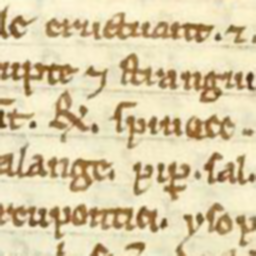 le eructuant. ⁊.
upte ⁊ strangui
it. &. spinace.
alange. pip̲. sal.
reupontici. ysop